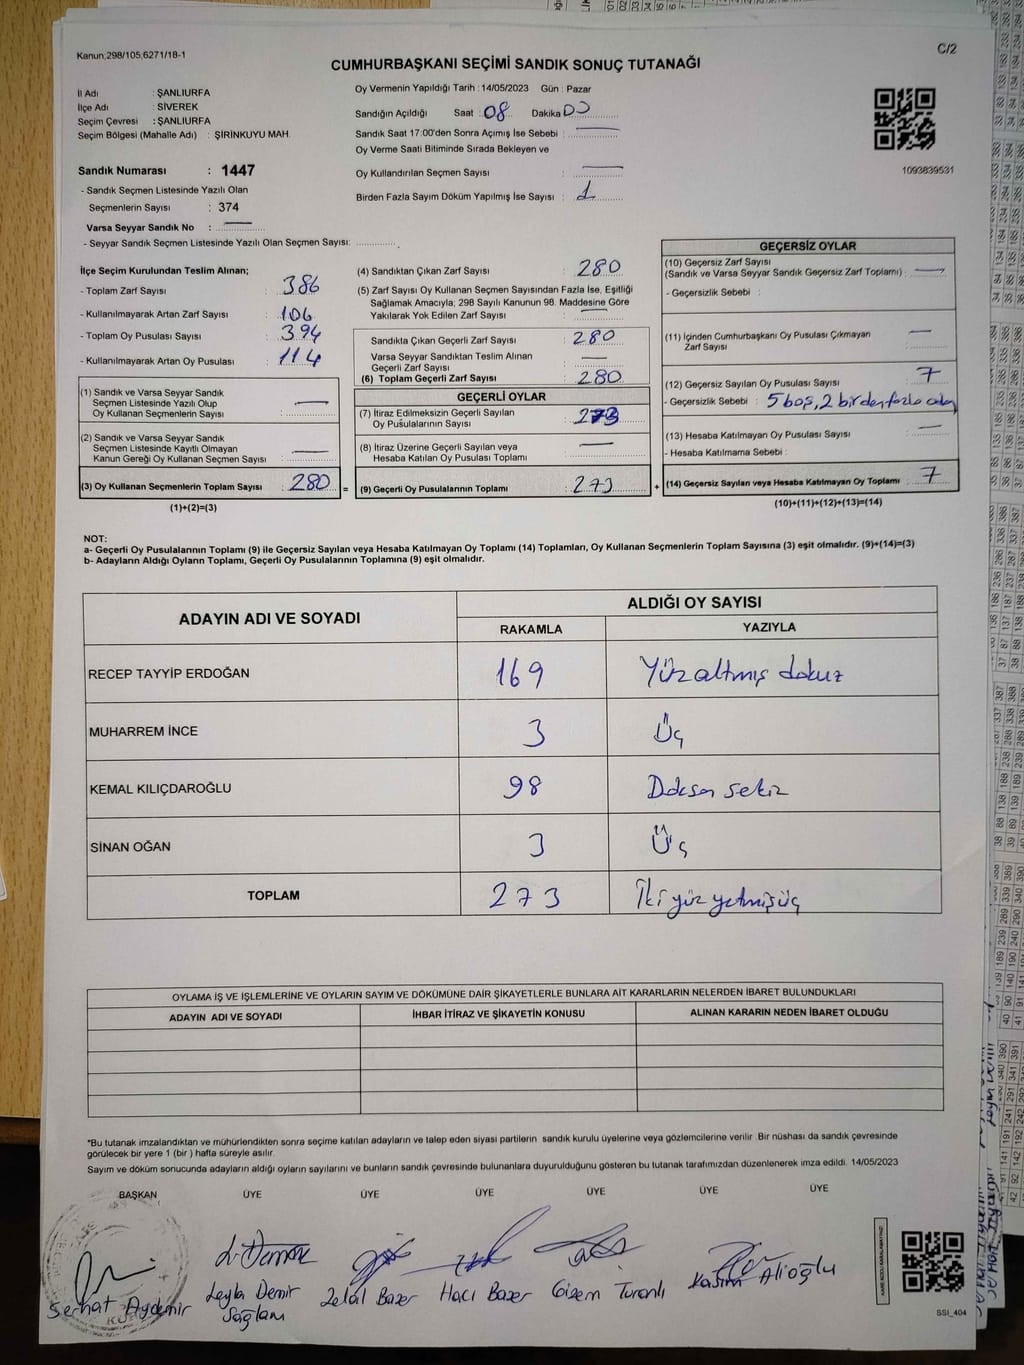 Kanun,298/105,6271/18-1
C/2
CUMHURBAŞKANI SEÇİMİ SANDIK SONUÇ TUTANAĞI
İl Adı : ŞANLIURFA
İlçe Adı : SİVEREK
Seçim Çevresi : ŞANLIURFA
Seçim Bölgesi (Mahalle Adı) : ŞİRİNKUYU MAH.
Sandık Numarası : 1447
- Sandık Seçmen Listesinde Yazılı Olan
Seçmenlerin Sayısı : 374
Varsa Seyyar Sandık No :
- Seyyar Sandık Seçmen Listesinde Yazılı Olan Seçmen Sayısı:
Oy Vermenin Yapıldığı Tarih : 14/05/2023 Gün : Pazar
Sandığın Açıldığı Saat : 08 Dakika
Sandık Saat 17:00'den Sonra Açımış İse Sebebi :
Oy Verme Saati Bitiminde Sırada Bekleyen ve
Oy Kullandırılan Seçmen Sayısı :
Birden Fazla Sayım Döküm Yapılmış İse Sayısı : 1
1093839531
İlçe Seçim Kurulundan Teslim Alınan;
- Toplam Zarf Sayısı : 386
- Kullanılmayarak Artan Zarf Sayısı : 106
- Toplam Oy Pusulası Sayısı : 394
- Kullanılmayarak Artan Oy Pusulası : 114
(1) Sandık ve Varsa Seyyar Sandık
Seçmen Listesinde Yazılı Olup
Oy Kullanan Seçmenlerin Sayısı :
(2) Sandık ve Varsa Seyyar Sandık
Seçmen Listesinde Kayıtlı Olmayan
Kanun Gereği Oy Kullanan Seçmen Sayısı :
(3) Oy Kullanan Seçmenlerin Toplam Sayısı : 280 =
(1)+(2)=(3)
(4) Sandıktan Çıkan Zarf Sayısı : 280
(5) Zarf Sayısı Oy Kullanan Seçmen Sayısından Fazla İse, Eşitliği
Sağlamak Amacıyla; 298 Sayılı Kanunun 98. Maddesine Göre
Yakılarak Yok Edilen Zarf Sayısı :
Sandıkta Çıkan Geçerli Zarf Sayısı : 280
Varsa Seyyar Sandıktan Teslim Alınan
Geçerli Zarf Sayısı :
(6) Toplam Geçerli Zarf Sayısı : 280
GEÇERLİ OYLAR
(7) İtiraz Edilmeksizin Geçerli Sayılan
Oy Pusulalarının Sayısı : 273
(8) İtiraz Üzerine Geçerli Sayılan veya
Hesaba Katılan Oy Pusulası Toplamı :
(9) Geçerli Oy Pusulalarının Toplamı : 273 +
GEÇERSİZ OYLAR
(10) Geçersiz Zarf Sayısı
(Sandık ve Varsa Seyyar Sandık Geçersiz Zarf Toplamı) :
- Geçersizlik Sebebi :
(11) İçinden Cumhurbaşkanı Oy Pusulası Çıkmayan
Zarf Sayısı :
(12) Geçersiz Sayılan Oy Pusulası Sayısı : 7
- Geçersizlik Sebebi : 5 boş, 2 birden fazla
(13) Hesaba Katılmayan Oy Pusulası Sayısı :
- Hesaba Katılmama Sebebi :
(14) Geçersiz Sayılan veya Hesaba Katılmayan Oy Toplamı : 7
(10)+(11)+(12)+(13)=(14)
NOT:
a- Geçerli Oy Pusulalarının Toplamı (9) ile Geçersiz Sayılan veya Hesaba Katılmayan Oy Toplamı (14) Toplamları, Oy Kullanan Seçmenlerin Toplam Sayısına (3) eşit olmalıdır. (9)+(14)=(3)
b- Adayların Aldığı Oyların Toplamı, Geçerli Oy Pusulalarının Toplamına (9) eşit olmalıdır.
ADAYIN ADI VE SOYADI
ALDIĞI OY SAYISI
RAKAMLA YAZIYLA
RECEP TAYYİP ERDOĞAN 169 Yüz altmış dokuz
MUHARREM İNCE 3 Üç
KEMAL KILIÇDAROĞLU 98 Doksan sekiz
SİNAN OĞAN 3 Üç
TOPLAM 273 İki yüz yetmiş üç
OYLAMA İŞ VE İŞLEMLERİNE VE OYLARIN SAYIM VE DÖKÜMÜNE DAİR ŞİKAYETLERLE BUNLARA AİT KARARLARIN NELERDEN İBARET BULUNDUKLARI
ADAYIN ADI VE SOYADI İHBAR İTİRAZ VE ŞİKAYETİN KONUSU ALINAN KARARIN NEDEN İBARET OLDUĞU
*Bu tutanak imzalandıktan ve mühürlendikten sonra seçime katılan adayların ve talep eden siyasi partilerin sandık kurulu üyelerine veya gözlemcilerine verilir. Bir nüshası da sandık çevresinde
görülecek bir yere 1 (bir ) hafta süreyle asılır.
Sayım ve döküm sonucunda adayların aldığı oyların sayılarını ve bunların sandık çevresinde bulunanlara duyurulduğunu gösteren bu tutanak tarafımızdan düzenlenerek imza edildi. 14/05/2023
BAŞKAN ÜYE ÜYE ÜYE ÜYE ÜYE ÜYE
Serhat Aydemir
Leyla Demir
Sağlam
Zelal Bazer
Hacı Bazer
Gizem Turanlı
Kasım Alioğlu
SSI_404